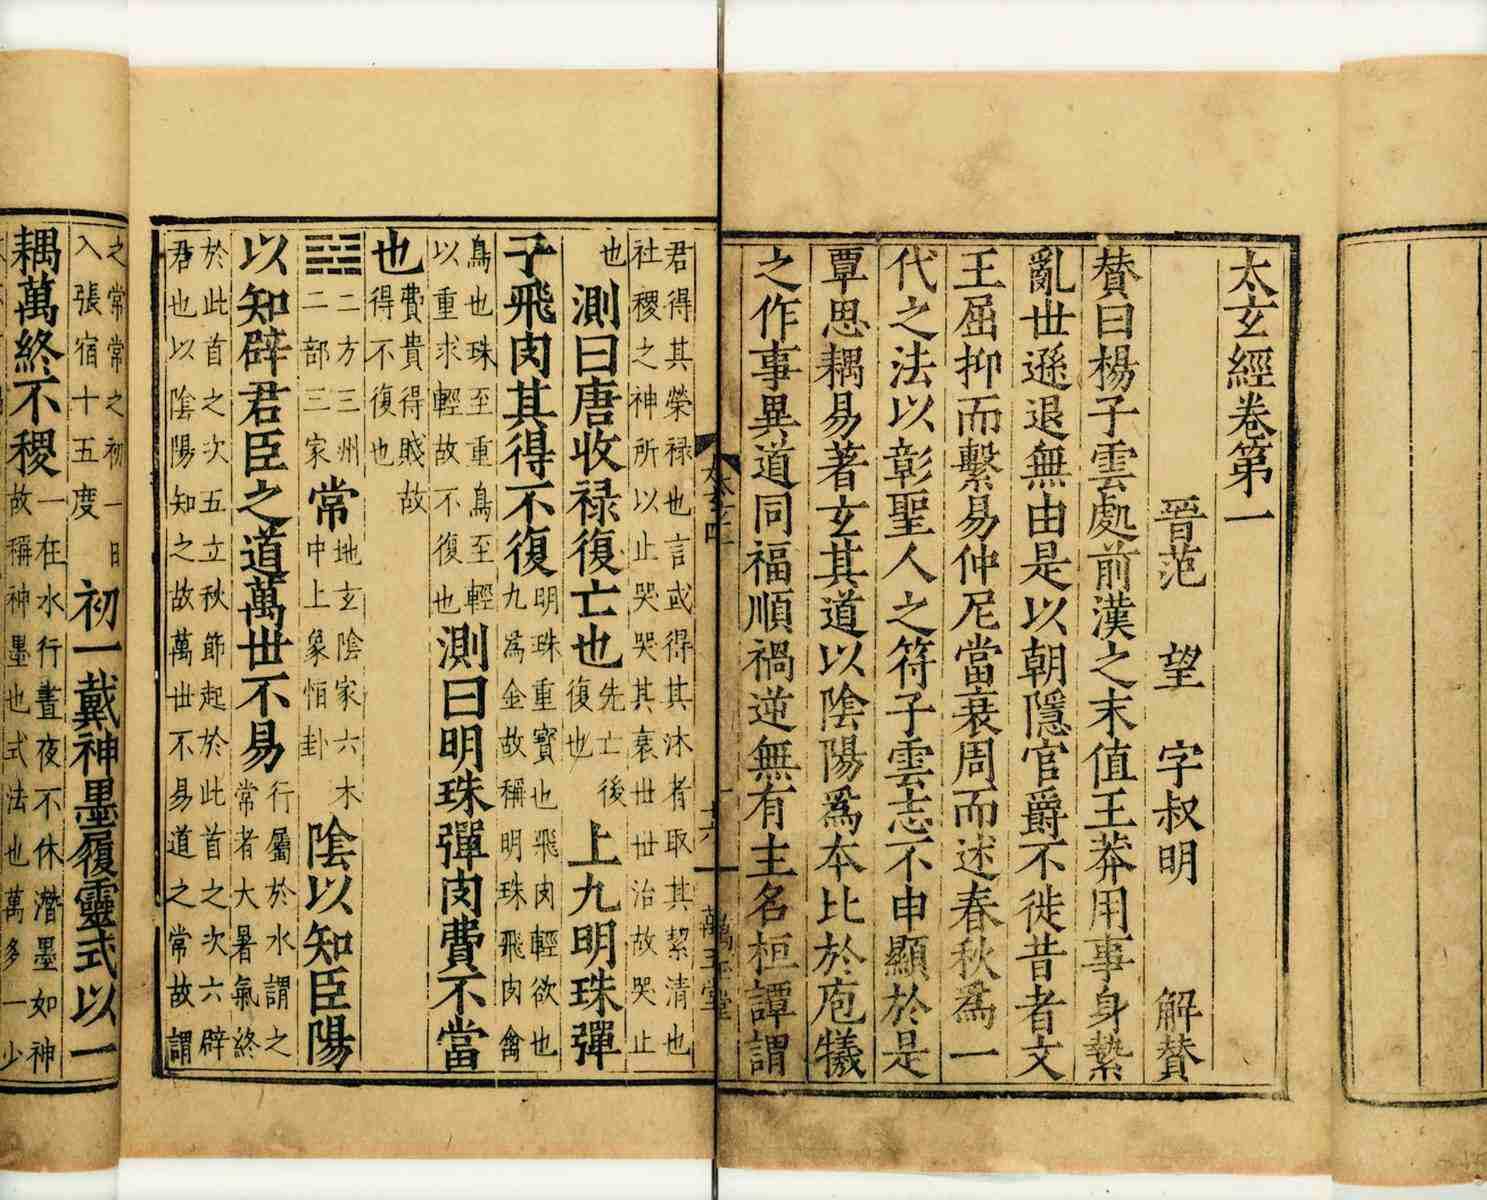 太玄經卷第一
晉范 望 字叔明 解贊
贊曰楊子雲處前漢之末值王莽用事身縶
亂世遜退無由是以朝隱官爵不徙昔者文
王屈抑而繫易仲尼當衰周而述春秋爲一
代之法以彰聖人之符子雲志不申顯於是
覃思耦易著玄其道以陰陽爲本比於庖犧
之作事異道同福順禍逆無有主名桓譚謂
太玄四 十六 萬玉堂
君得其榮禄也言或得其沐者取其絜清也
社稷之神所以止哭哭其衰世世治故哭止
也 測曰唐收禄復亡也 先亡後復也 上九明珠彈
于飛肉其得不復 明珠重寳也飛肉輕欲也九爲金故稱明珠飛肉禽
鳥也珠至重鳥至輕以重求輕故不復也 測曰明珠彈肉費不當
也 費貴得賤故得不復也
二方三州二部三家 常 地玄陰家六木中上象恒卦 陰以知臣陽
以知辟君臣之道萬世不易 行屬於水謂之常者大暑氣終
於此首之次五立秋節起於此首之次六辟
君也以陰陽知之故萬世不易道之常故謂
之常常之初一日入張宿十五度 初一戴神墨履靈式以一
耦萬終不稷 一在水行晝夜不休潛墨如神故稱神墨也式法也萬多一少